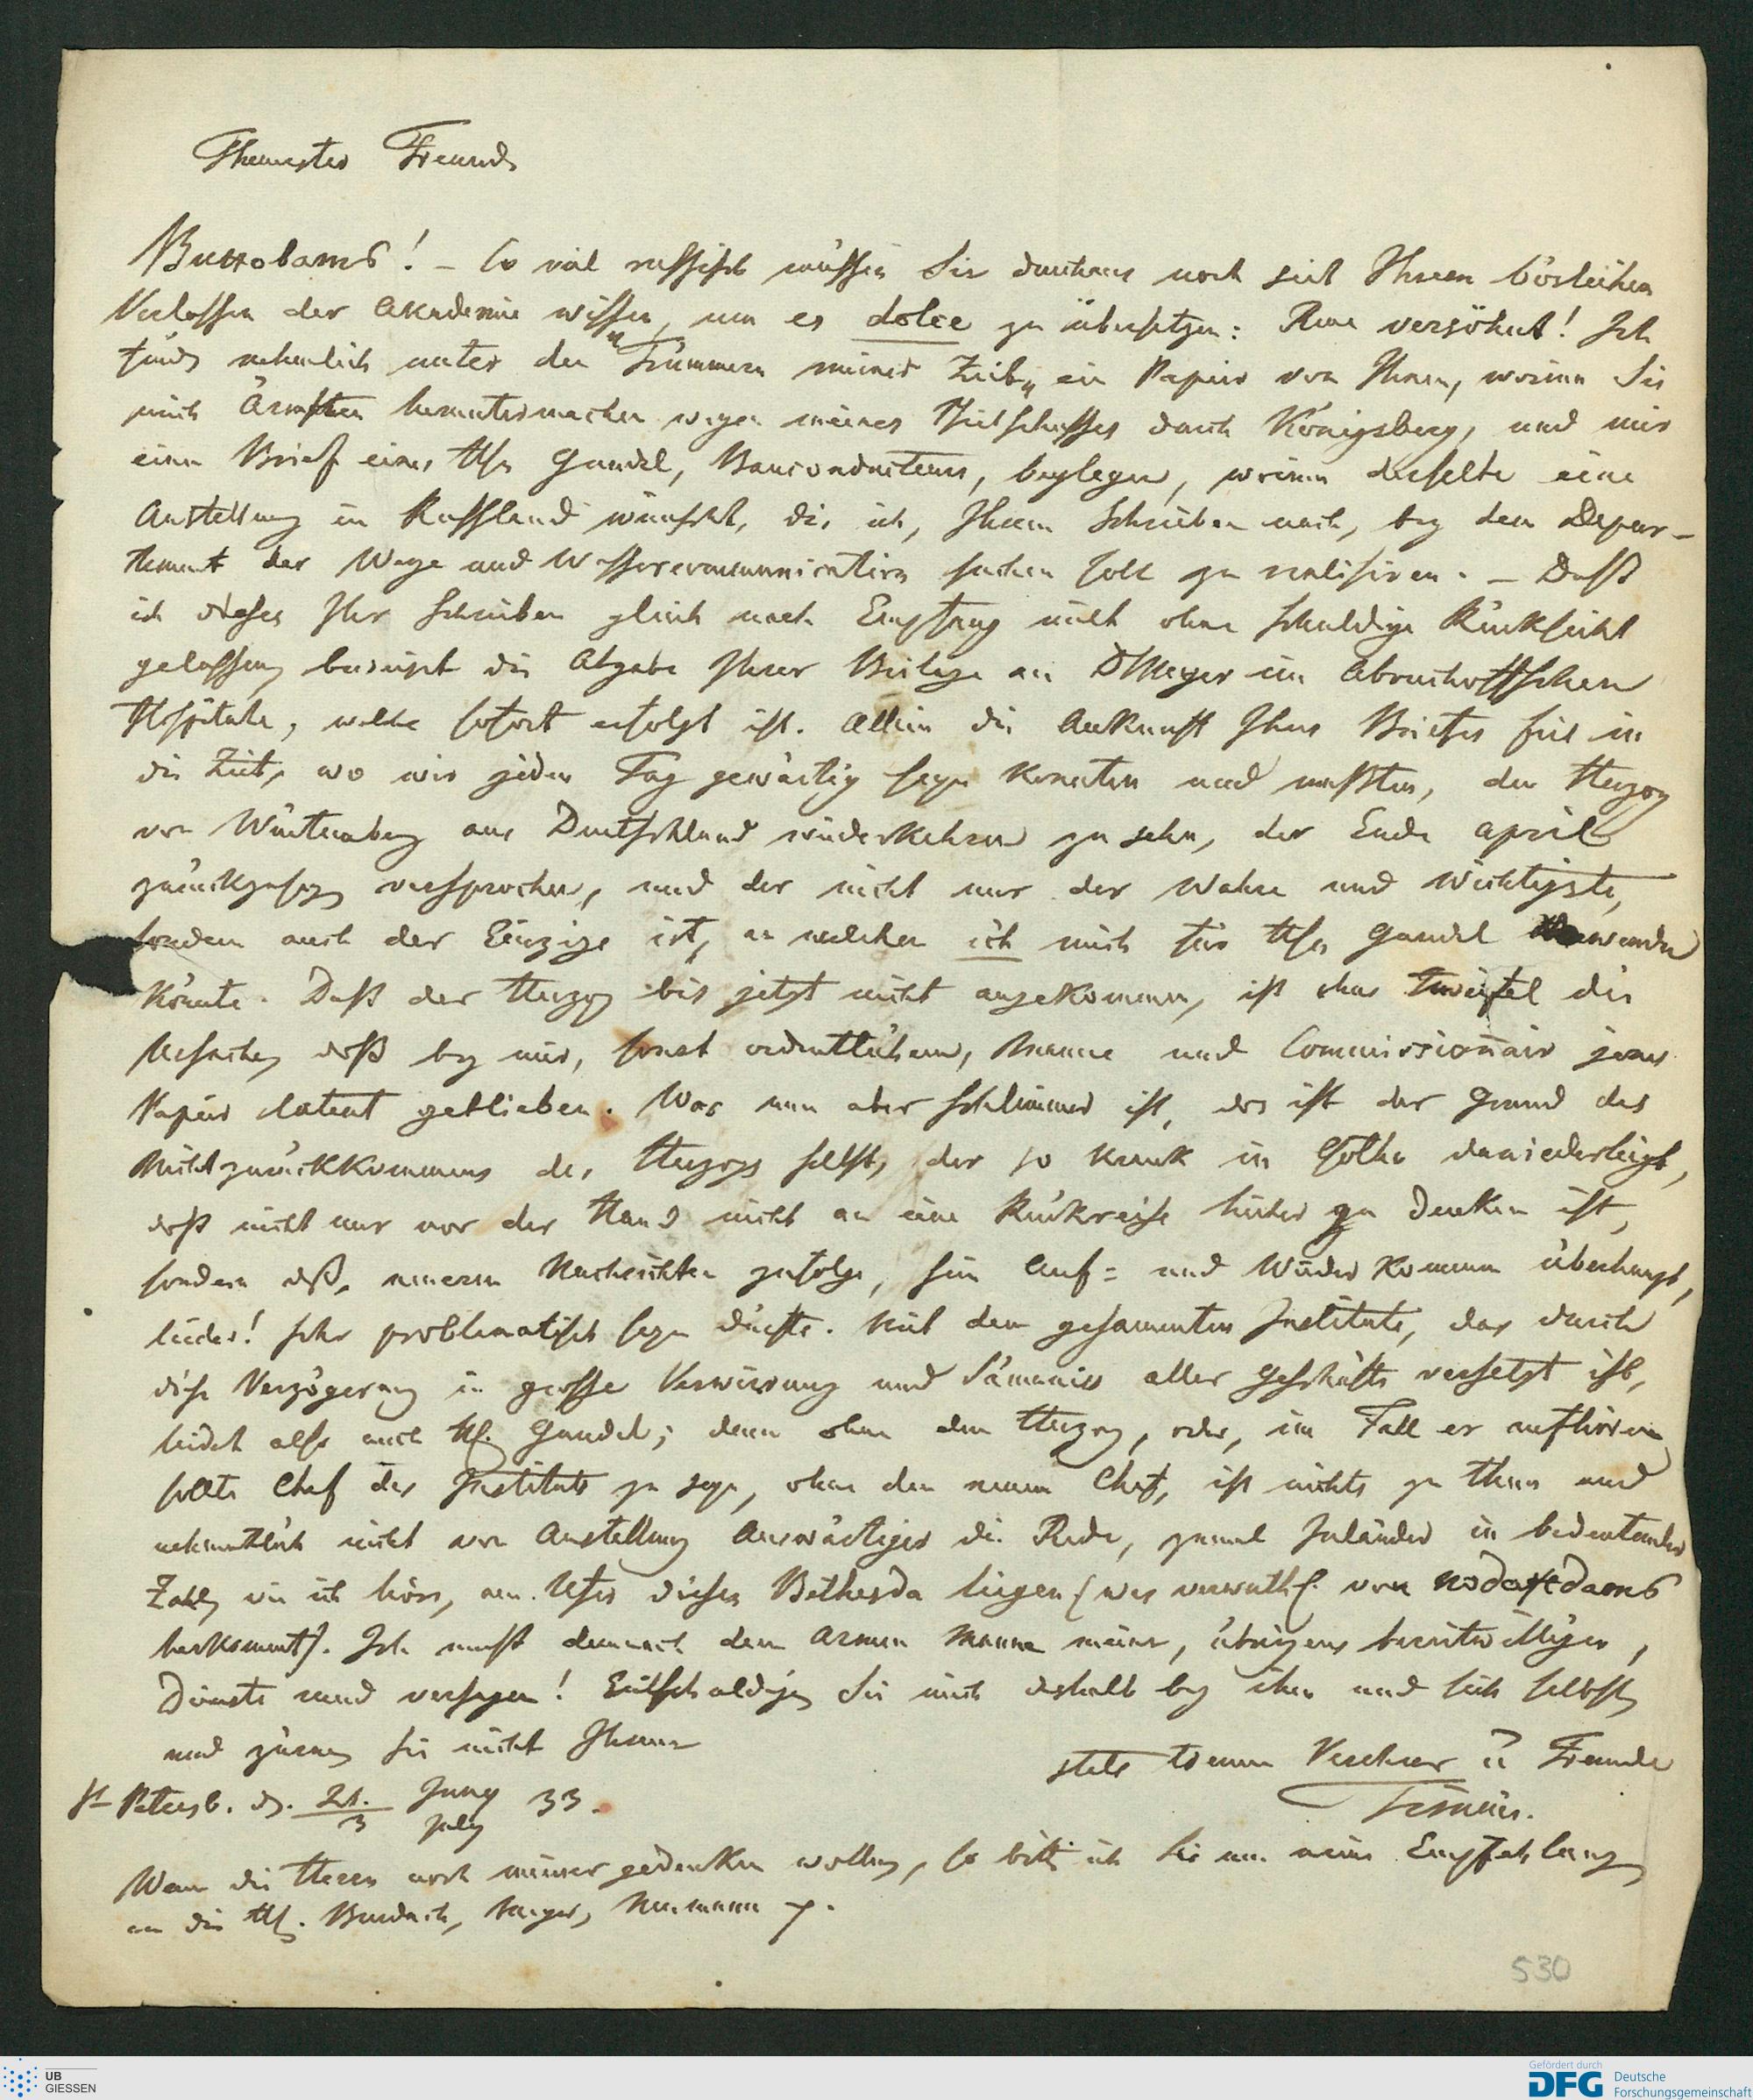 Theuerster Freund,
Виноватъ! – So viel russisch müssen Sie durchaus noch seit Ihrem bösleichen
Verlassen der Akademie wissen, um es dolce zu übersetzen: Reue versöhnt! Ich
fand nehmlich unter den Trümmern meiner Zeit, ein Papier von Ihnen, worinn Sie
mich Ärmsten heruntermachen wegen meines Durch Königsberg, und mir
einen Brief eines Hrn Gandel, Bauconducteurs, beylegen, worinn derselbe eine
Anstellung in Russland wünscht, die ich, Ihrem Schreiben nach, bey dem Depar-
tement der Wege und Wassercommunication suchen soll zu realisiren. – Dass
ich dieses Ihr Schreiben gleich nach Empfang nicht ohne schuldige Rücksicht
gelassen, beweist die Abgabe Ihrer Beilage an D Meyer im Abuchoffschen
Hospitale, welche sofort erfolgt ist. Allein die Ankunft Ihres Briefes fiel in
die Zeit, wo wir jeden Tag gewärtig seyn konnten und mussten, den Herzog
von Würtemberg aus Deutschland wiederkehren zu sehn, der Ende April
zurückzuseyn versprochen, und der nicht nur der Wahre und Wichtigste,
sondern auch der Einzige ist, an welchen ich mich für Hrn Gandel wenden
könnte. Daß der Herzog bis jetzt nicht angekommen, ist ohne Zweifel die
Ursache, daß bey mir, sonst ordentlichem, Manne und Commissionair jenes
Papier latent geblieben. Was nun aber schlimmer ist, das ist der Grund des
Nichtzurückkommens des Herzogs selbst, der so krank in Gotha darniederliegt,
daß nicht nur vor der Hand nicht an eine Rückreise hieher zu denken ist,
sondern daß, neueren Nachrichten zufolge, sein Auf= und Wiederkommen überhaupt,
leider! sehr problematisch seyn dürfte. Mit dem gesammten Institute, das durch
diese Verzögerung in grosse Verwirrung und Säumniss aller Geschäfte versetzt ist,
leidet also auch Hr. Gandel; denn ohne den Herzog, oder, im Fall er aufhören
sollte Chef des Instituts zu seyn, ohne den neuen Chef, ist nichts zu thun und
nehmentlich nicht von Anstellung Auswärtiger die Rede, zumal Inländer in bedeutender
Zahl, wie ich höre, am Ufer dieses Bethesda liegen (was vermuthl. von
herkommt). Ich muß demnach dem armen Manne meine, übrigens bereitwilligen,
Dienste rund versagen! Entschuldigen Sie mich deshalb bey ihm und sich selbst,
und zürnen Sie nicht Ihrem
stets treuen Verehrer u Freunde
St Petersb. d. 21. Juny 33.
3 July
Wenn die Herrn noch meiner gedenken wollen, so bitte ich Sie um meine Empfehlung,
an die HH. Burdach, Meyer, Neumann
530
UB
GIESSEN
Gefördert durch
DFG Deutsche
Forschungsgemeinschaft